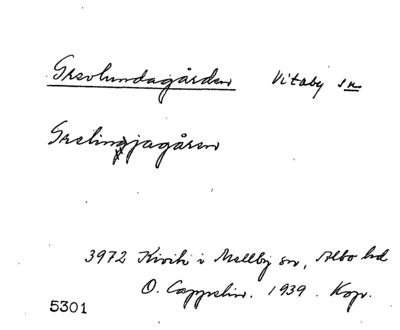 Grevlundagården Vitaby sn
Grelingjagåren
3972 Kivik i Mellby sn, Albo hd
O. Cappelin. 1939. Kop.
5301